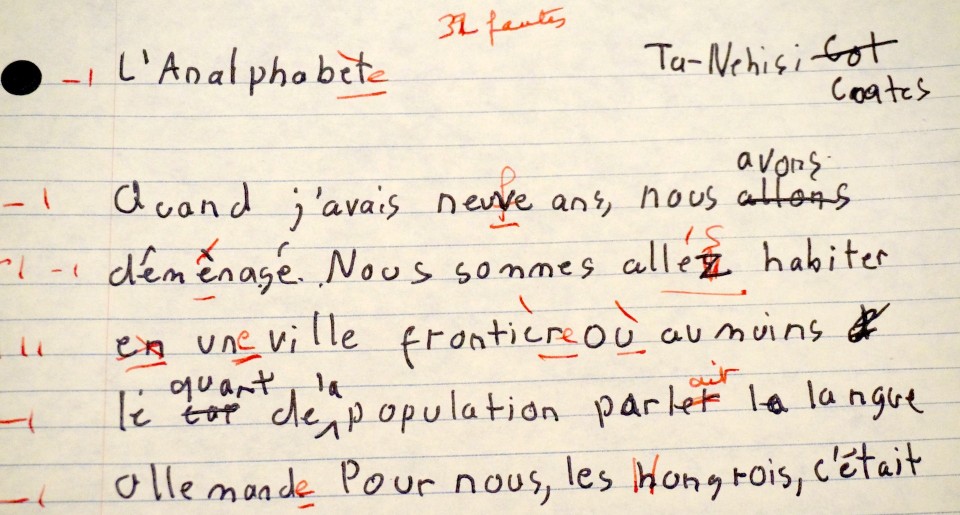 32 fautes
-1 L'Analphabète Ta-Nehisi Cot
Coates
avons
-1 Quand j'avais neuve ans, nous allons
-1 -1 déménagé. Nous sommes allés habiter
11 en une ville frontière où au moins
quant la ait
-1 le de population parlet la langue
-1 allemande Pour nous, les Hongrois, c'était